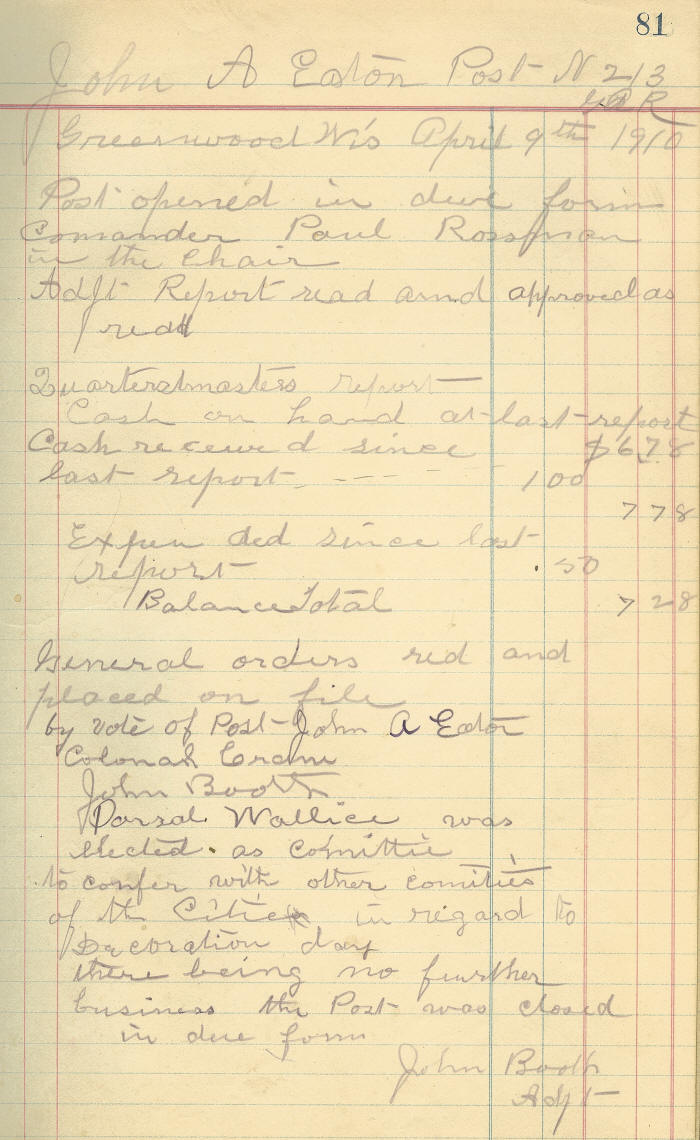 81
John A Eaton Post N 213
G A R
Greenwood Wis April 9th 1910
Post opened in due form
Comander Paul Rossman
in the Chair
Adjt Report read and approved as
read
Quartermasters report
Cash on hand at last report
Cash received since $678
last report 100
778
Expended since last
report .50
Balance Total 728
General orders red and
placed on file
by vote of Post John A Eaton
Colonah
John Booth
Dorsal Wallice was
elected. as Comittie
to confer with other comities
of the Cities in regard to
Decoration day
there being no further
business the Post was closed
in due form
John Booth
Adjt